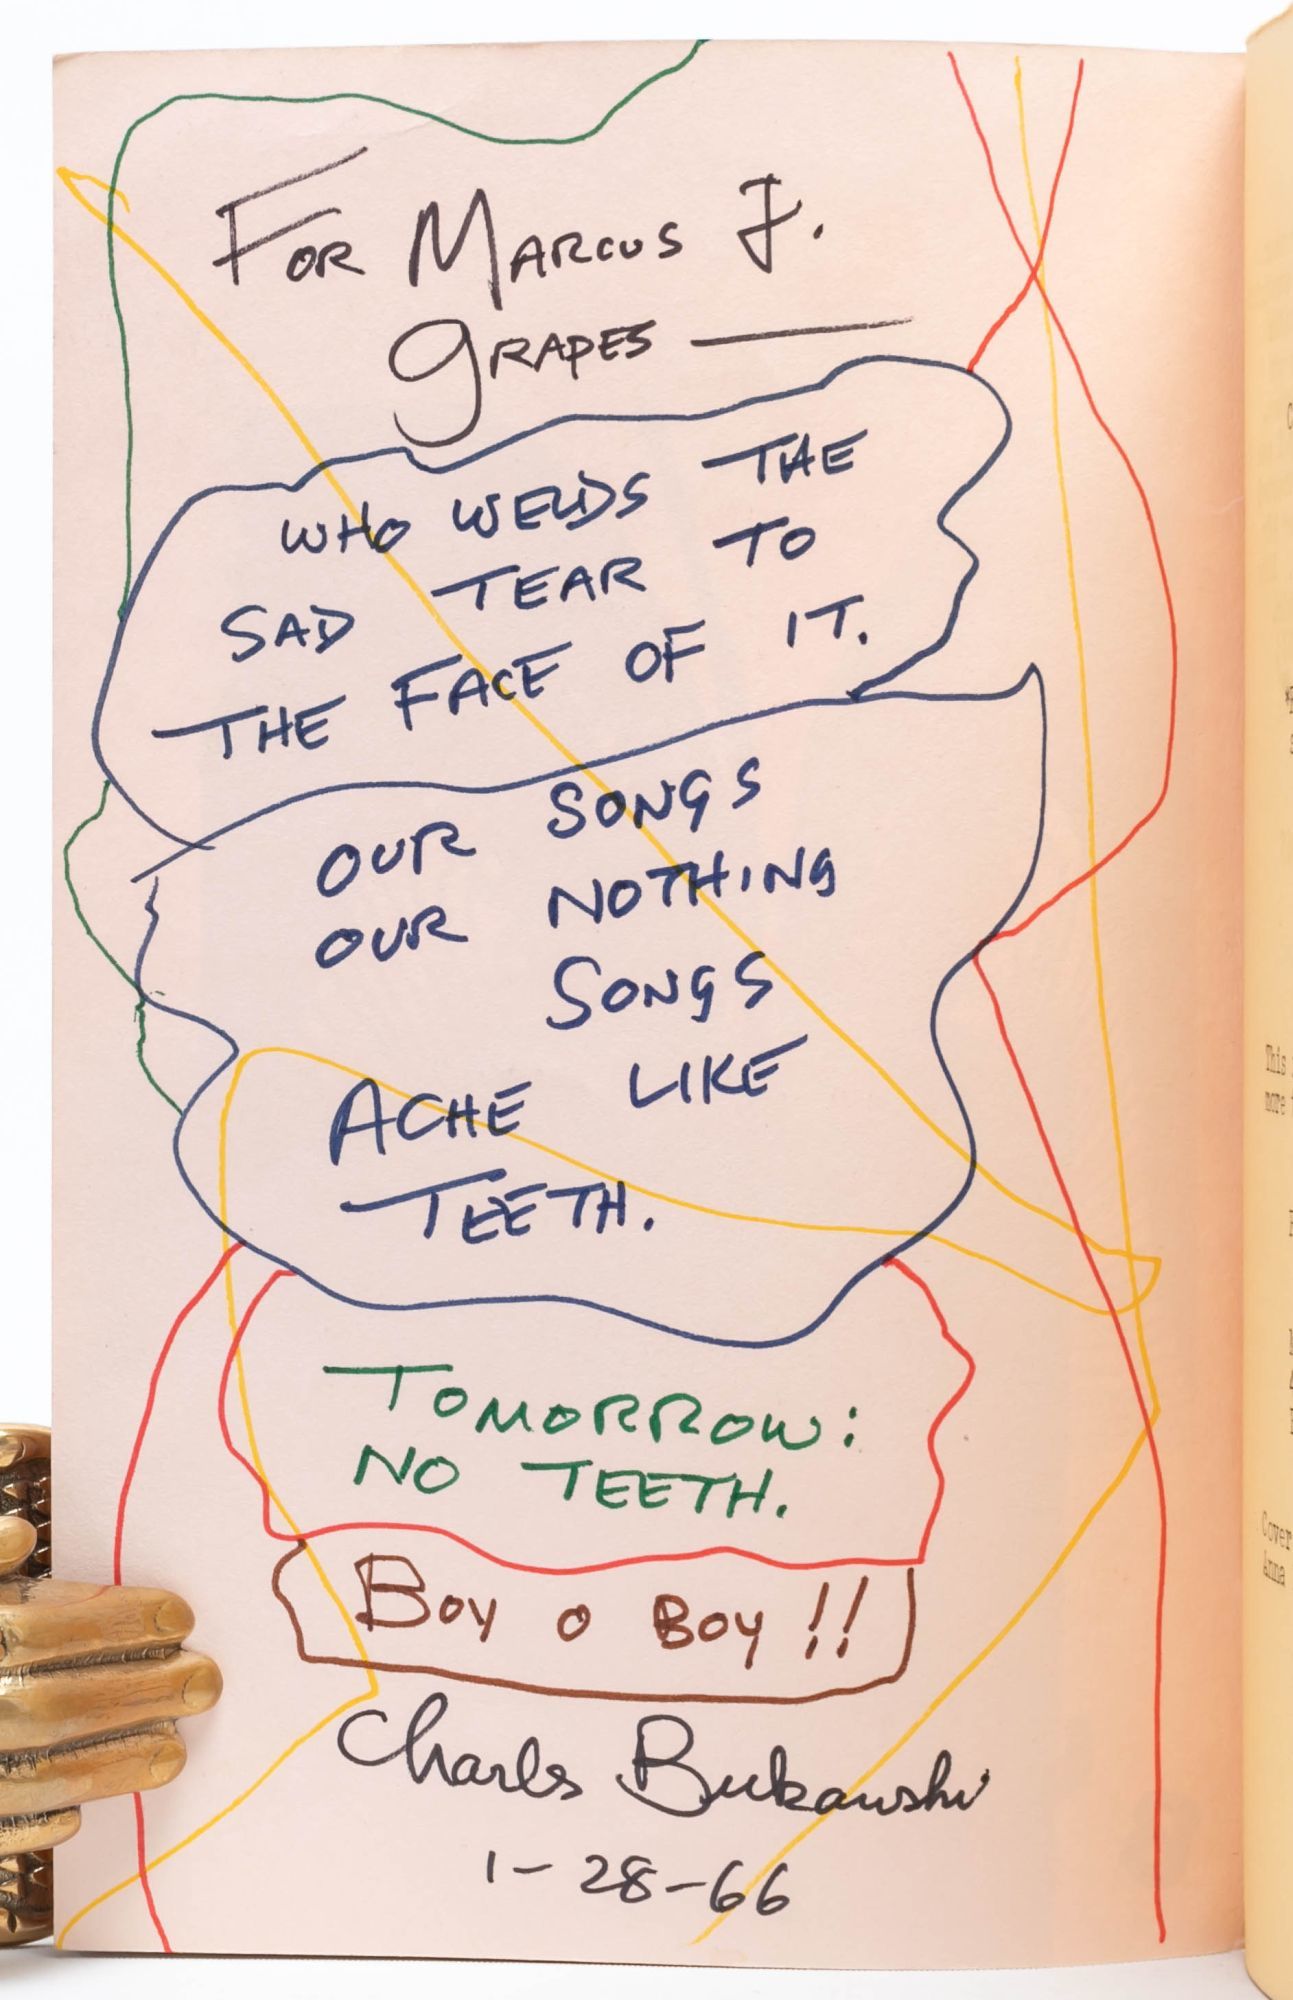 FOR MARCUS J.
GRAPES —
WHO WELDS THE
SAD TEAR TO
THE FACE OF IT.
OUR SONGS
OUR NOTHING
SONGS
ACHE LIKE
TEETH.
TOMORROW:
NO TEETH.
BOY O BOY!!
Charles Bukowski
1-28-66
This
more
Cover
Anna